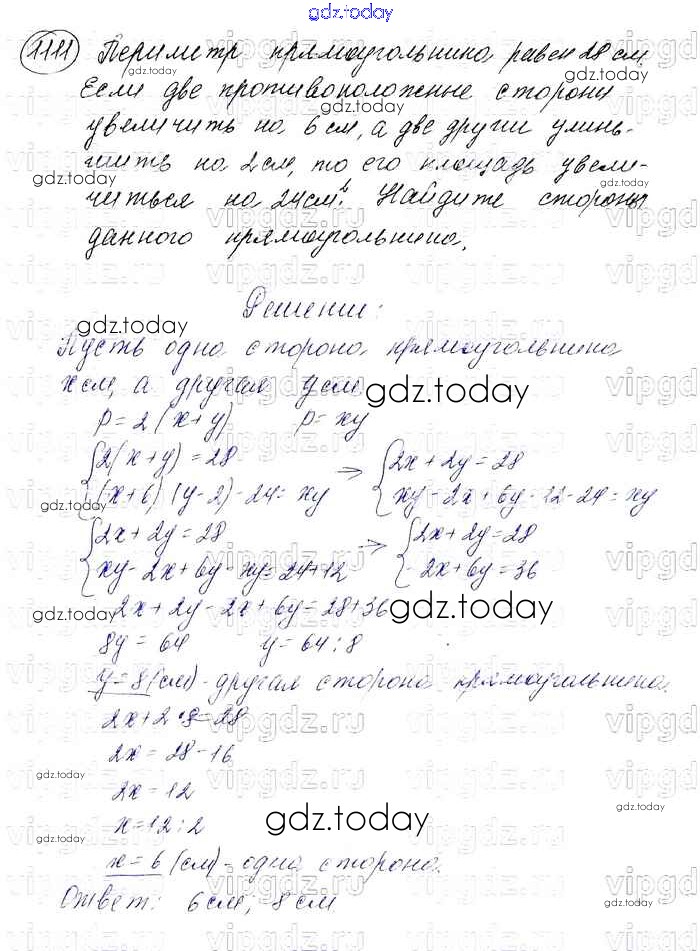 gdz.today
1111 Периметр прямоугольника равен 28 см
gdz.today
Если две противоположные стороны
увеличить на 6 см, а две други умень-
шить на 2 см, то его площадь увели-
gdz.today gdz.today
читься на 24 см². Найдите стороны
данного прямоугольника.
vipgdz.ru
Решении:
gdz.today
Пусть одна сторона прямоугольника
x см, а другая y см
gdz.today
P = 2(x+y) P = xy
{2(x+y) = 28 → {2x+2y = 28
{(x+6)(y-2)-24 = xy {xy-2x+6y-12-24 = xy
{2x+2y = 28 → {2x+2y = 28
{xy-2x+6y-xy = 24+12 {-2x+6y = 36
2x+2y-2x+6y = 28+36
gdz.today gdz.today
8y = 64 y = 64:8
y = 8 (см) - другая сторона прямоугольника.
2x+2·8 = 28
2x = 28-16
gdz.today
2x = 12
gdz.today gdz.today
x = 12:2
x = 6 (см) - одна сторона.
Ответ: 6 см; 8 см